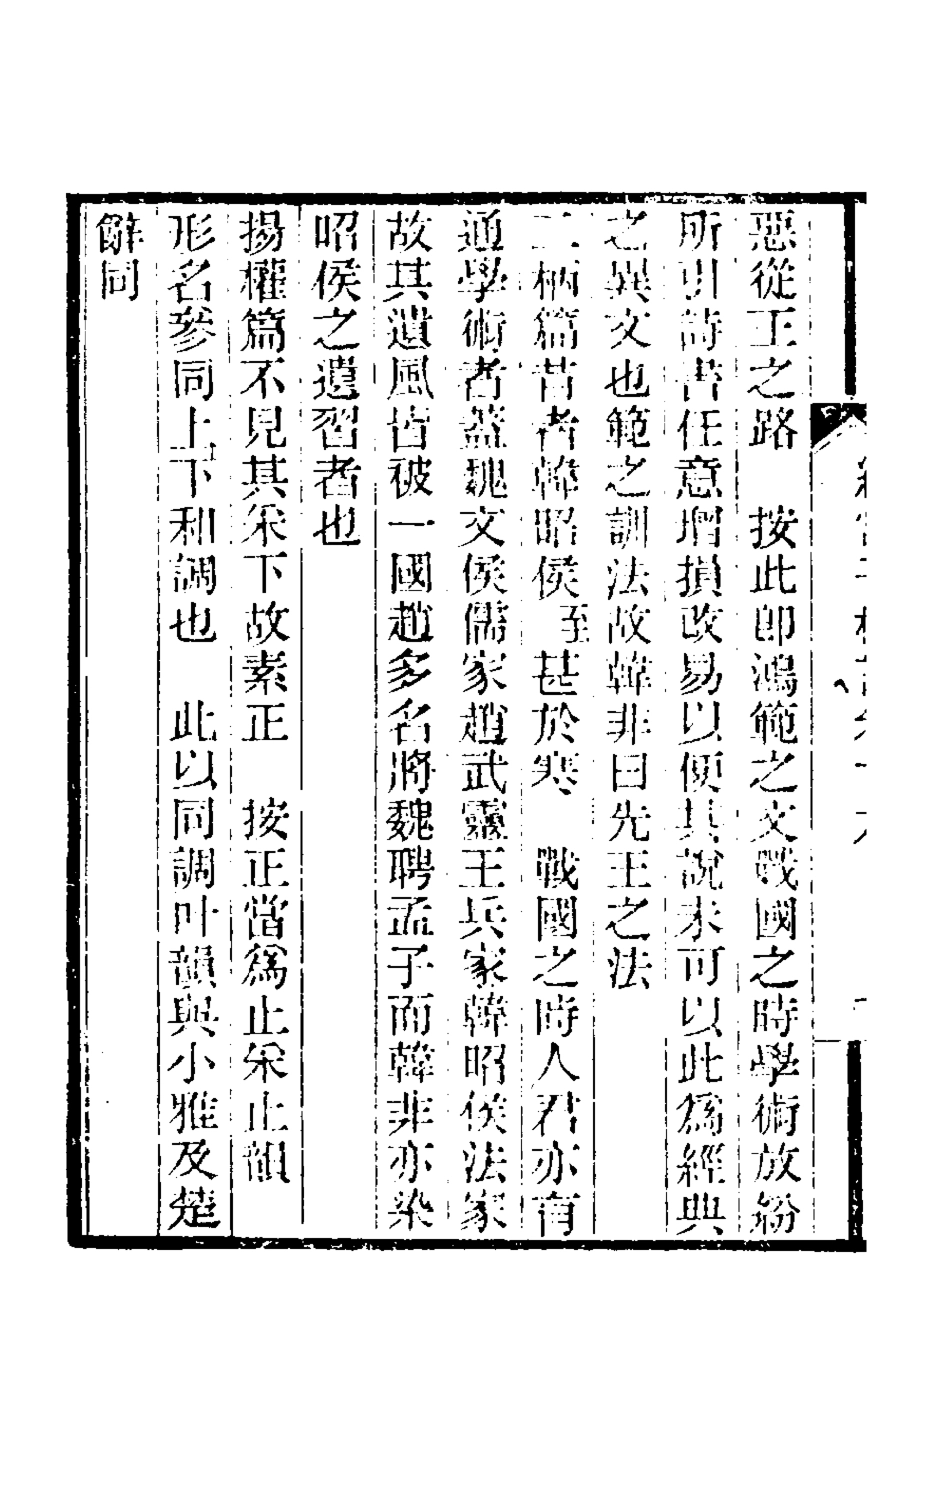 惡從王之路　按此即鴻範之文戰國之時學術放紛
所引詩書任意增損改易以便其說未可以此為經典
之異文也範之訓法故韓非曰先王之法
二柄篇昔者韓昭侯至甚於寒　戰國之時人君亦有
通學術者蓋魏文侯儒家趙武靈王兵家韓昭侯法家
故其遺風皆被一國趙多名將魏聘孟子而韓非亦染
昭侯之遺習者也
揚權篇不見其采下故素正　按正當爲止采止韻
形名參同上下和調也　此以同調叶韻與小雅及楚
辭同